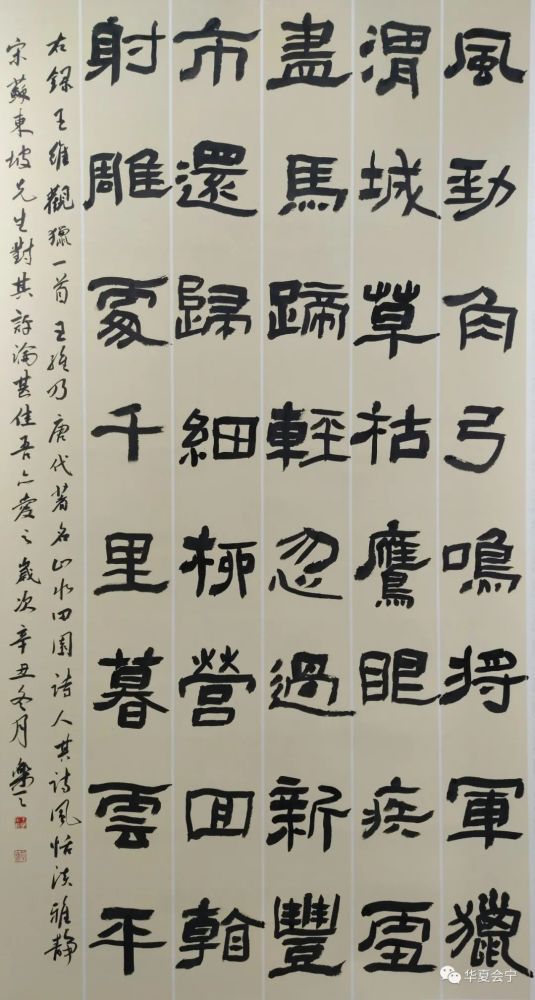 風勁角弓鳴將軍獵
渭城草枯鷹眼疾雪
盡馬蹄輕忽過新豐
市還歸細柳營回看
射雕處千里暮雲平
右録王維觀獵一首王維乃唐代著名山水田園詩人其詩風恬淡雅靜
宋蘇東坡先生對其評論甚佳吾亦愛之歲次辛丑冬月
华夏会宁